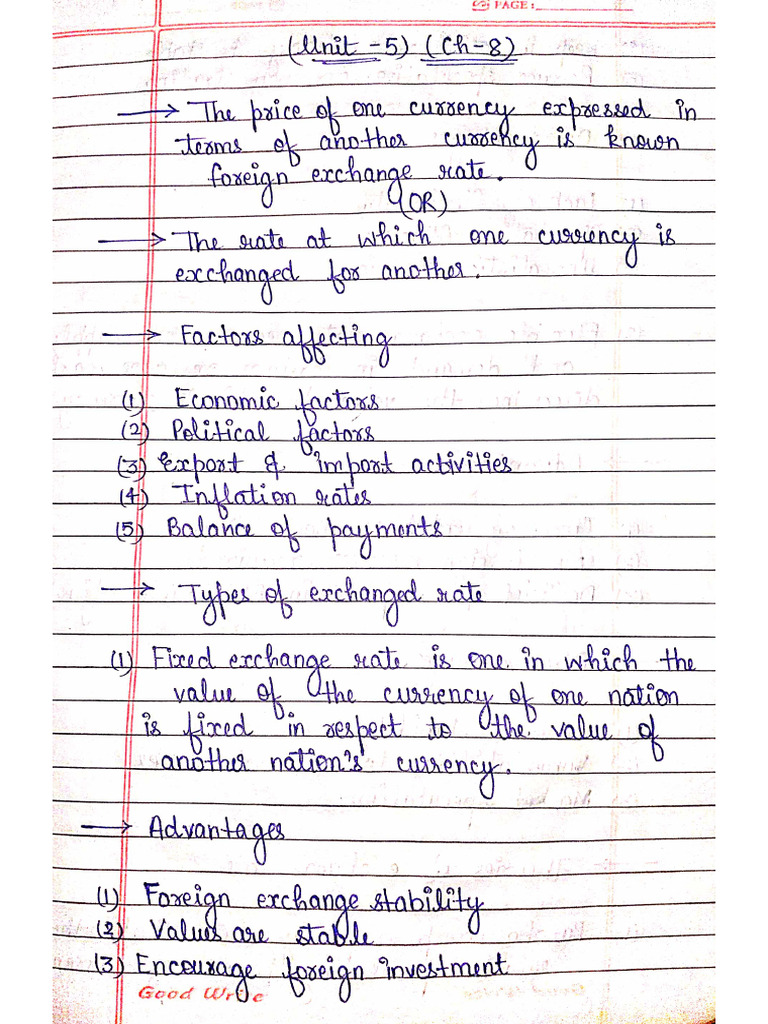 PAGE:
(Unit -5) (Ch-8)
→ The price of one currency expressed in
terms of another currency is known
foreign exchange rate.
(OR)
→ The rate at which one currency is
excchanged for another.
→ Factors affecting
(1) Economic factors
(2) Political factors
(3) Export & import activities
(4) Inflation rates
(5) Balance of payments
→ Types of exchanged rate
(1) Fixed exchange rate is one in which the
value of the currency of one nation
is fixed in respect to the value of
another nation's currency.
→ Advantages
(1) Foreign exchange stability
(2) Values are stable
(3) Encourage foreign investment
Good Write